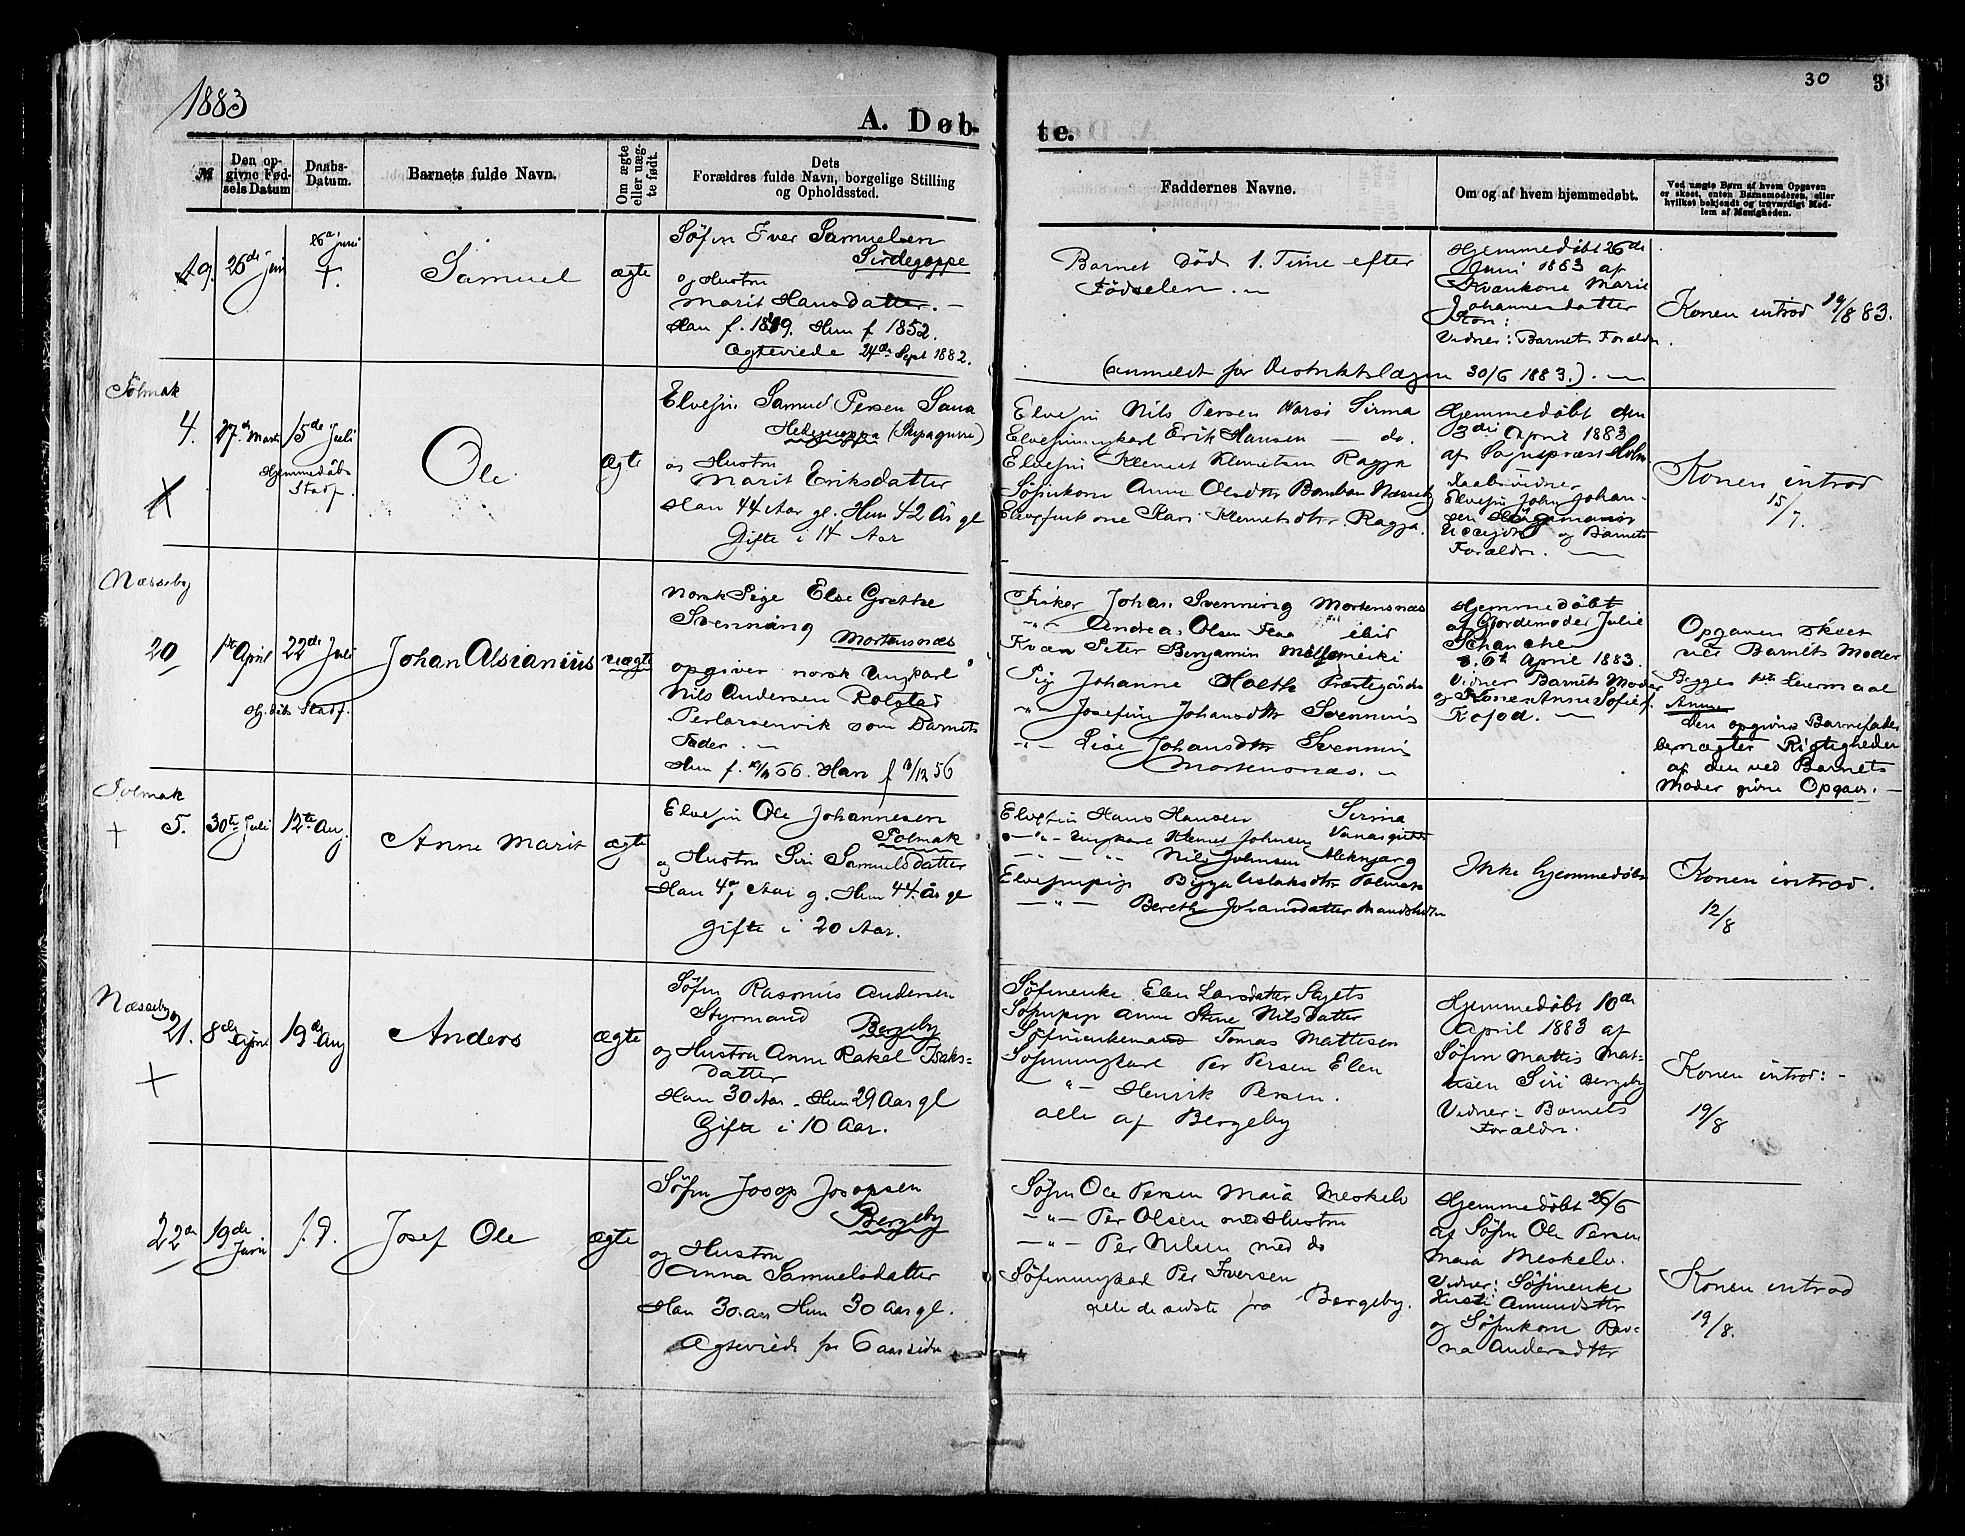 1883
30
3
A. Døb-
te.
№
Den op-
givne Fød-
sels Datum
Daabs-
Datum.
Barnets fulde Navn.
Om ægte
eller uæg-
te født.
Dets
Forældres fulde Navn, borgelige Stilling
og Opholdssted.
Faddernes Navne.
Om og af hvem hjemmedøbt.
Ved uægte Børn af hvem Opgaven
er skeet, enten Barnemoderen, eller
hvilket bekjendt og troværdigt Med-
lem af Menigheden.
19.
26de Juni
26de Juni
†.
Samuel
ægte
Søfin Iver Samuelsen
Sirdegoppe
og Hustru
Marit Hansdatter. —
Han f. 1849. Hun f 1852.
Ægteviede 24de Sept 1882.
Barnet død 1. Time efter
Fødselen. —
(anmeldt for Distriktslægen 30/6 1883.). —
Hjemmedøbt 26de
Juni 1883 af
Kvænkone Marie
Johannesdatter
Vidner: Barnets Forældre.
Konen introd 19/8 83.
Polmak
4.
27de Marts
15de Juli
Hjemmedøbs
Stadf.
Ole
ægte
Elvefin Samuel Persen Sana
og Hustru
Marit Eriksdatter
Han 44 Aar gl. Hun 42 År gl
Gifte i 14 Aar
Elvefin Nils Persen Sirma
Elvefinungkarl Erik Hansen — do.
Elvefin Klemet Klemetsen Ragja
Søfinkone Anne Olsdtr Næsseby
Elvefinkone Kari Klemetsdtr Ragja.
Hjemmedøbt den
3die April 1883
af Sognepræst Holm
Daabsvidner
Elvefin John Johan-
sen
og Barnets
Forældre. —
Konen introd
15/7.
Næsseby
20
1ste April
22de Juli
Hj. dåbs Stadf.
Johan Alsianius
uægte
Norsk Pige Else Grethe
Svenning
Mortensnæs
opgiver norsk Ungkarl
Nils Andersen Rolstad
Perlarsenvik som Barnets
Fader. —
Hun f. 56. Han f /12 56
Fisker Johan Svenning Mortensnæs
" Andreas Olsen ibid
Kvæn Peter Benjamin
Pig Johanne Holth Præstegården
" Josefine Johansdtr Svenning
" Johansdtr Svenning
Mortensnæs. —
Hjemmedøbt
af Gjordemoder Julie
Schanche
d. 6te April 1883.
Vidner Barnets Moder
og Kone Anne Sofie
Kofod. —
Opgaven skeet
ved Barnets Moder
Begges 1ste Leiermaal
Anm.
Den opgivne Barnefader
benægter Rigtigheden
af den ved Barnets
Moder givne Opgave. —
Polmak
5.
30te Juli
12te Aug.
Anne Marit
ægte
Elvefin Ole Johannesen
Polmak
og Hustru Siri Samuelsdatter
Han 47 Aar g. Hun 44. År gl
gifte i 20 Aar.
Elvefin Hans Hansen Sirma
— " — Ungkarl Klemet Johnsen
— " — Nils Johnsen
Elvefinpige Bigga Aslaksdtr Polmak
— " — Bereth Johansdatter
Ikke hjemmedøbt
Konen introd.
12/8
Næsseby
21.
8de April
19de Aug
Anders
ægte
Søfin Rasmus Andersen
Styrmand
Bergeby
og Hustru Anne Rakel Isaks-
datter
Han 30 Aar. Hun 29 Aar gl
Gifte i 10 Aar.
Søfinenke Elen Larsdatter
Søfinpige Anne Stine Nilsdatter
Søfinenkemand Tomas Mattisen
Søfinungkarl Per Persen Elen
" — Henrik Persen.
alle af Bergeby
Hjemmedøbt 10de
April 1883 af
Søfin Mattis Mat-
tisen Siri Bergeby
Vidner: Barnets
Forældre.
Konen introd: —
19/8
22a
19de Juni
s. d.
Josef Ole
ægte
Søfin Josop Josopsen
Bergeby
og Hustru
Anna Samuelsdatter
Han 30. aar Hun 30 Aar gl.
Ægteviede for 6 aar siden
Søfin Ole Persen Maia Meskelv
— " — Per Olsen med Hustru
— " — Per Nilsen med do
Søfinungkarl Per Iversen
alle de sidste fra Bergeby.
Hjemmedøbt 26/6
af Søfin Ole Persen
Maia Meskelv.
Vidner: Søfinenke
Kirsti Amundsdtr
og Søfinkone Rav-
na Andersdtr
Konen introd
19/8.